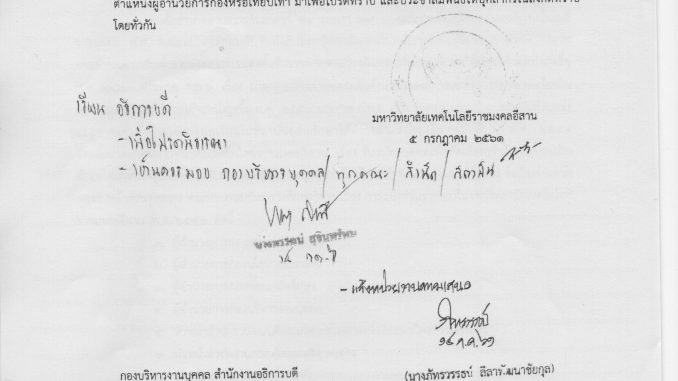 ตำแหน่งผู้อำนวยการกองหรือเทียบเท่า มาเพื่อโปรดทราบ และประชาสัมพันธ์ให้บุคลากรในสังกัดทราบ
โดยทั่วกัน
เรียน อธิการบดี
มหาวิทยาลัยเทคโนโลยีราชมงคลอีสาน
- เพื่อโปรดพิจารณา
๕ กรกฎาคม ๒๕๖๑
- เห็นควรมอบ กองบริหารงานบุคคล/ทุกคณะ/สำนัก/สถาบัน
- แจ้งหน่วยงานตามเสนอ
กองบริหารงานบุคคล สำนักงานอธิการบดี
(นางภัทรวรรธน์ ลีลาวัฒนาชัยกุล)